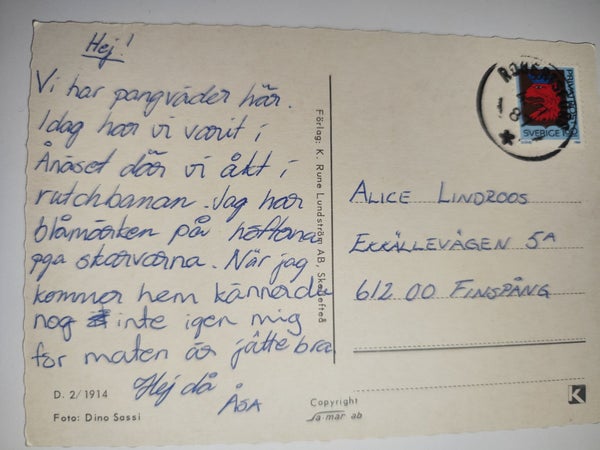 Hej!
Vi har pangväder här.
Idag har vi varit i
Ånäset där vi åkt i
rutchbanan. Jag har
blåmärken på höfterna
pga skarvarna. När jag
kommer hem känner du
nog inte igen mig
för maten är jättebra.
Hej då
ÅSA
D. 2/1914
Foto: Dino Sassi
Förlag: K. Rune Lundström AB, Skellefteå
Copyright
sa-mar ab
SVERIGE
ALICE LINDROOS
EKKÄLLEVÄGEN 5A
612 00 FINSPÅNG
K